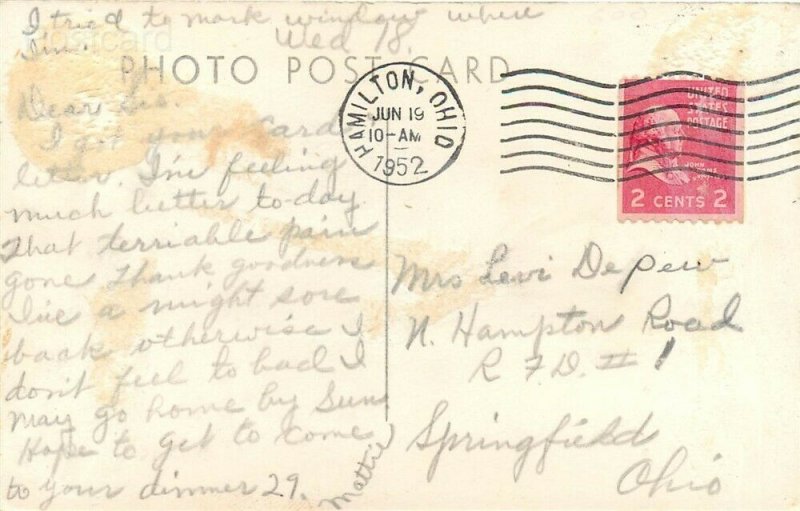 I tried to mark window where
I'm.
Wed 18.
PHOTO POST CARD
Dear Sis.
I got your Card
letter. I'm feeling
much better to-day
That terriable pain
gone thank goodness
I've a might sore
back otherwise I
don't feel to bad I
may go home by Sun
Hope to get to come
to your dinner 29.
Mattie
HAMILTON, OHIO
JUN 19
10-AM
1952
UNITED
STATES
POSTAGE
JOHN
2 CENTS 2
Mrs Levi Depew
N. Hampton Road
R F.D. # 1
Springfield
Ohio